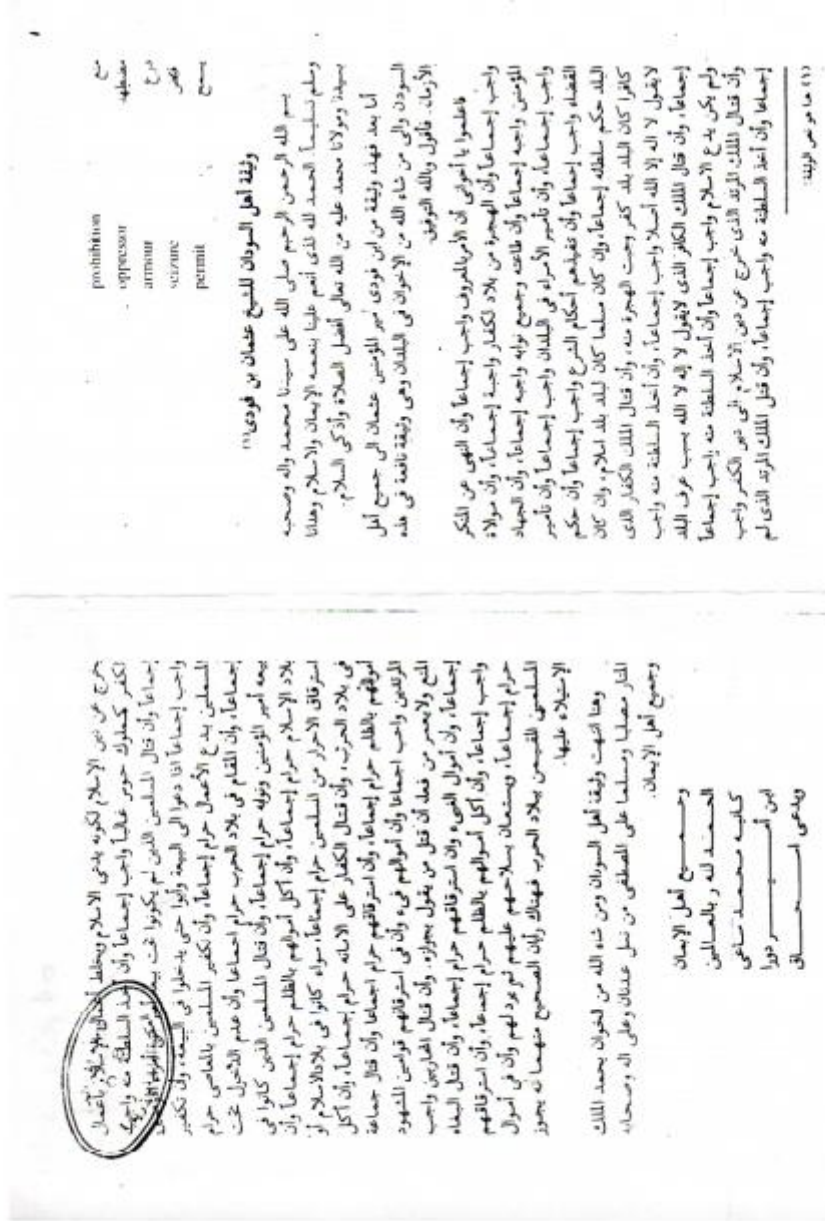 prohibition منع
oppressor مضطهد
armour درع
seizure قبض
permit يسمح
وثيقة أهل السودان للشيخ عثمان بن فودى(١)
بسم الله الرحمن الرحيم صلى الله على سيدنا محمد واله وصحبه
وسلم تسليماً. الحمد لله لذى أنعم علينا بنعمه الإيمان والاسلام وهدانا
بسيدنا ومولانا محمد عليه من الله تعالى أفضل الصلاة وأذكى السلام.
أما بعد فهذه وثيقة من ابن فودى أمير المؤمنين عثمان الى جميع أهل
السودن والى من شاء الله من الإخوان فى البلدان وهى وثيقة نافعة فى هذه
الأزمان. فأقول وبالله التوفيق.
فاعلموا يا أخوانى أن الأمر بالمعروف واجب إجماعاً وأن النهى عن المنكر
واجب إجماعاً وأن الهجرة من بلاد لكفار واجبة إجماعاً، وأن موالاة
المؤمنين واجبه إجماعاً وأن طاعته وجميع نوابه واجبه إجماعاً، وأن الجهاد
واجب إجماعاً، وأن تأمير الأمراء فى البلدان واجب إجماعاً وأن تأمير
القضاء واجب إجماعاً وأن تنفيذهم أحكام الشرع واجب إجماعاً وأن حكم
البلد حكم سلطانه إجماعاً، وإن كان مسلما كان لبلد بلد اسلام، وان كان
كافرا كان البلد بلد كفر وجبت الهجرة منه، وأن قتال الملك الكفار الذى
لايقول لا اله إلا الله أصلا واجب إجماعاً، وأن أخذ السلطنة منه واجب
إجماعاً، وأن قتال الملك الكافر الذى لايقول لا إله لا الله بسبب عرف البلد
ولم يكن يدع الاسلام واجب إجماعاً وأن أخذ السلطنة منه واجب إجماعاً
وأن قتال الملك المرتد الذى خرج عن دين الاسلام الى دين الكفر واجب
إجماعا وأن أخذ السلطنة منه واجب إجماعاً، وأن قتل الملك المرتد الذى لم
(١) هذا هو نص الوثيقة:
خرج عن دين الإسلام لكونه يدعى الاسلام ويخلط أعمال الإسلام بأعمال
الكفر كملوك حوسر غالباً واجب إجماعاً وأن أخذ السلطنة منه واجب
إجماعاً وأن قتال المسلمين الذين لم يكونوا تحت بيعة
واجب إجماعاً اذا دعوا الى البيعة وأبوا حتى يدخلوا فى البيعة، وأن تكفير
المسلمين بدع الأعمال حرام إجماعاً، وأن تكفير المسلمين بالمعاصى حرام
إجماعاً، وأن المقام فى بلاد الحرب حرام اجماعا وأن عدم الدخول تحت
بيعه أمير المؤمنين ونوابه حرام إجماعاً، وأن قتال المسلمين الذين كانوا فى
بلاد الإسلام حرام إجماعاً، وأن أكل أموالهم بالظلم حرام إجماعاً وأن
استرقاق الاحرار من المسلمين حرام إجماعاً، سواء كانوا فى بلاد الاسلام أو
فى بلاد الحرب، وأن قتال الكفار على الامانه حرام إجماعاً، وأن أكل
أموالهم بالظلم حرام إجماعاً، وأن استرقاقهم حرام اجماعا وأن قتال جماعة
المرتدين واجب اجماعا وأن أموالهم فىء وأن فى استرقاقهم قولين المشهور
المنع ولا يعصر من فعله أن قتل من يقول بجوازه، وأن قتال المحاربين واجب
إجماعاً، وأن أموال الفىء وأن استرقاقهم حرام إجماعاً، وأن قتال البغاه
واجب إجماعاً، وأن أكل أموالهم بالظلم حرام إجماعاً، وأن استرقاقهم
حرام إجماعاً، ويستعان بسلاحهم عليهم ثم يرد لهم وأن فى أموال
المسلمين المقيمين ببلاد الحرب فهناك رأيان الصحيح منهما نه يجوز
الإستيلاء عليها.
وهنا انتهت وثيقة أهل السودان ومن شاء الله من لخوان بحمد الملك
المنار مصليا ومسلما على المصطفى من نسل عدنان وعلى اله وصحابه
وجميع أهل الإيمان.
وجميع أهل الإيمان
الحمد لله رب العالمين
كاتبه محمد ساعى
ابن أمير دورا
ويدعى اسحاق